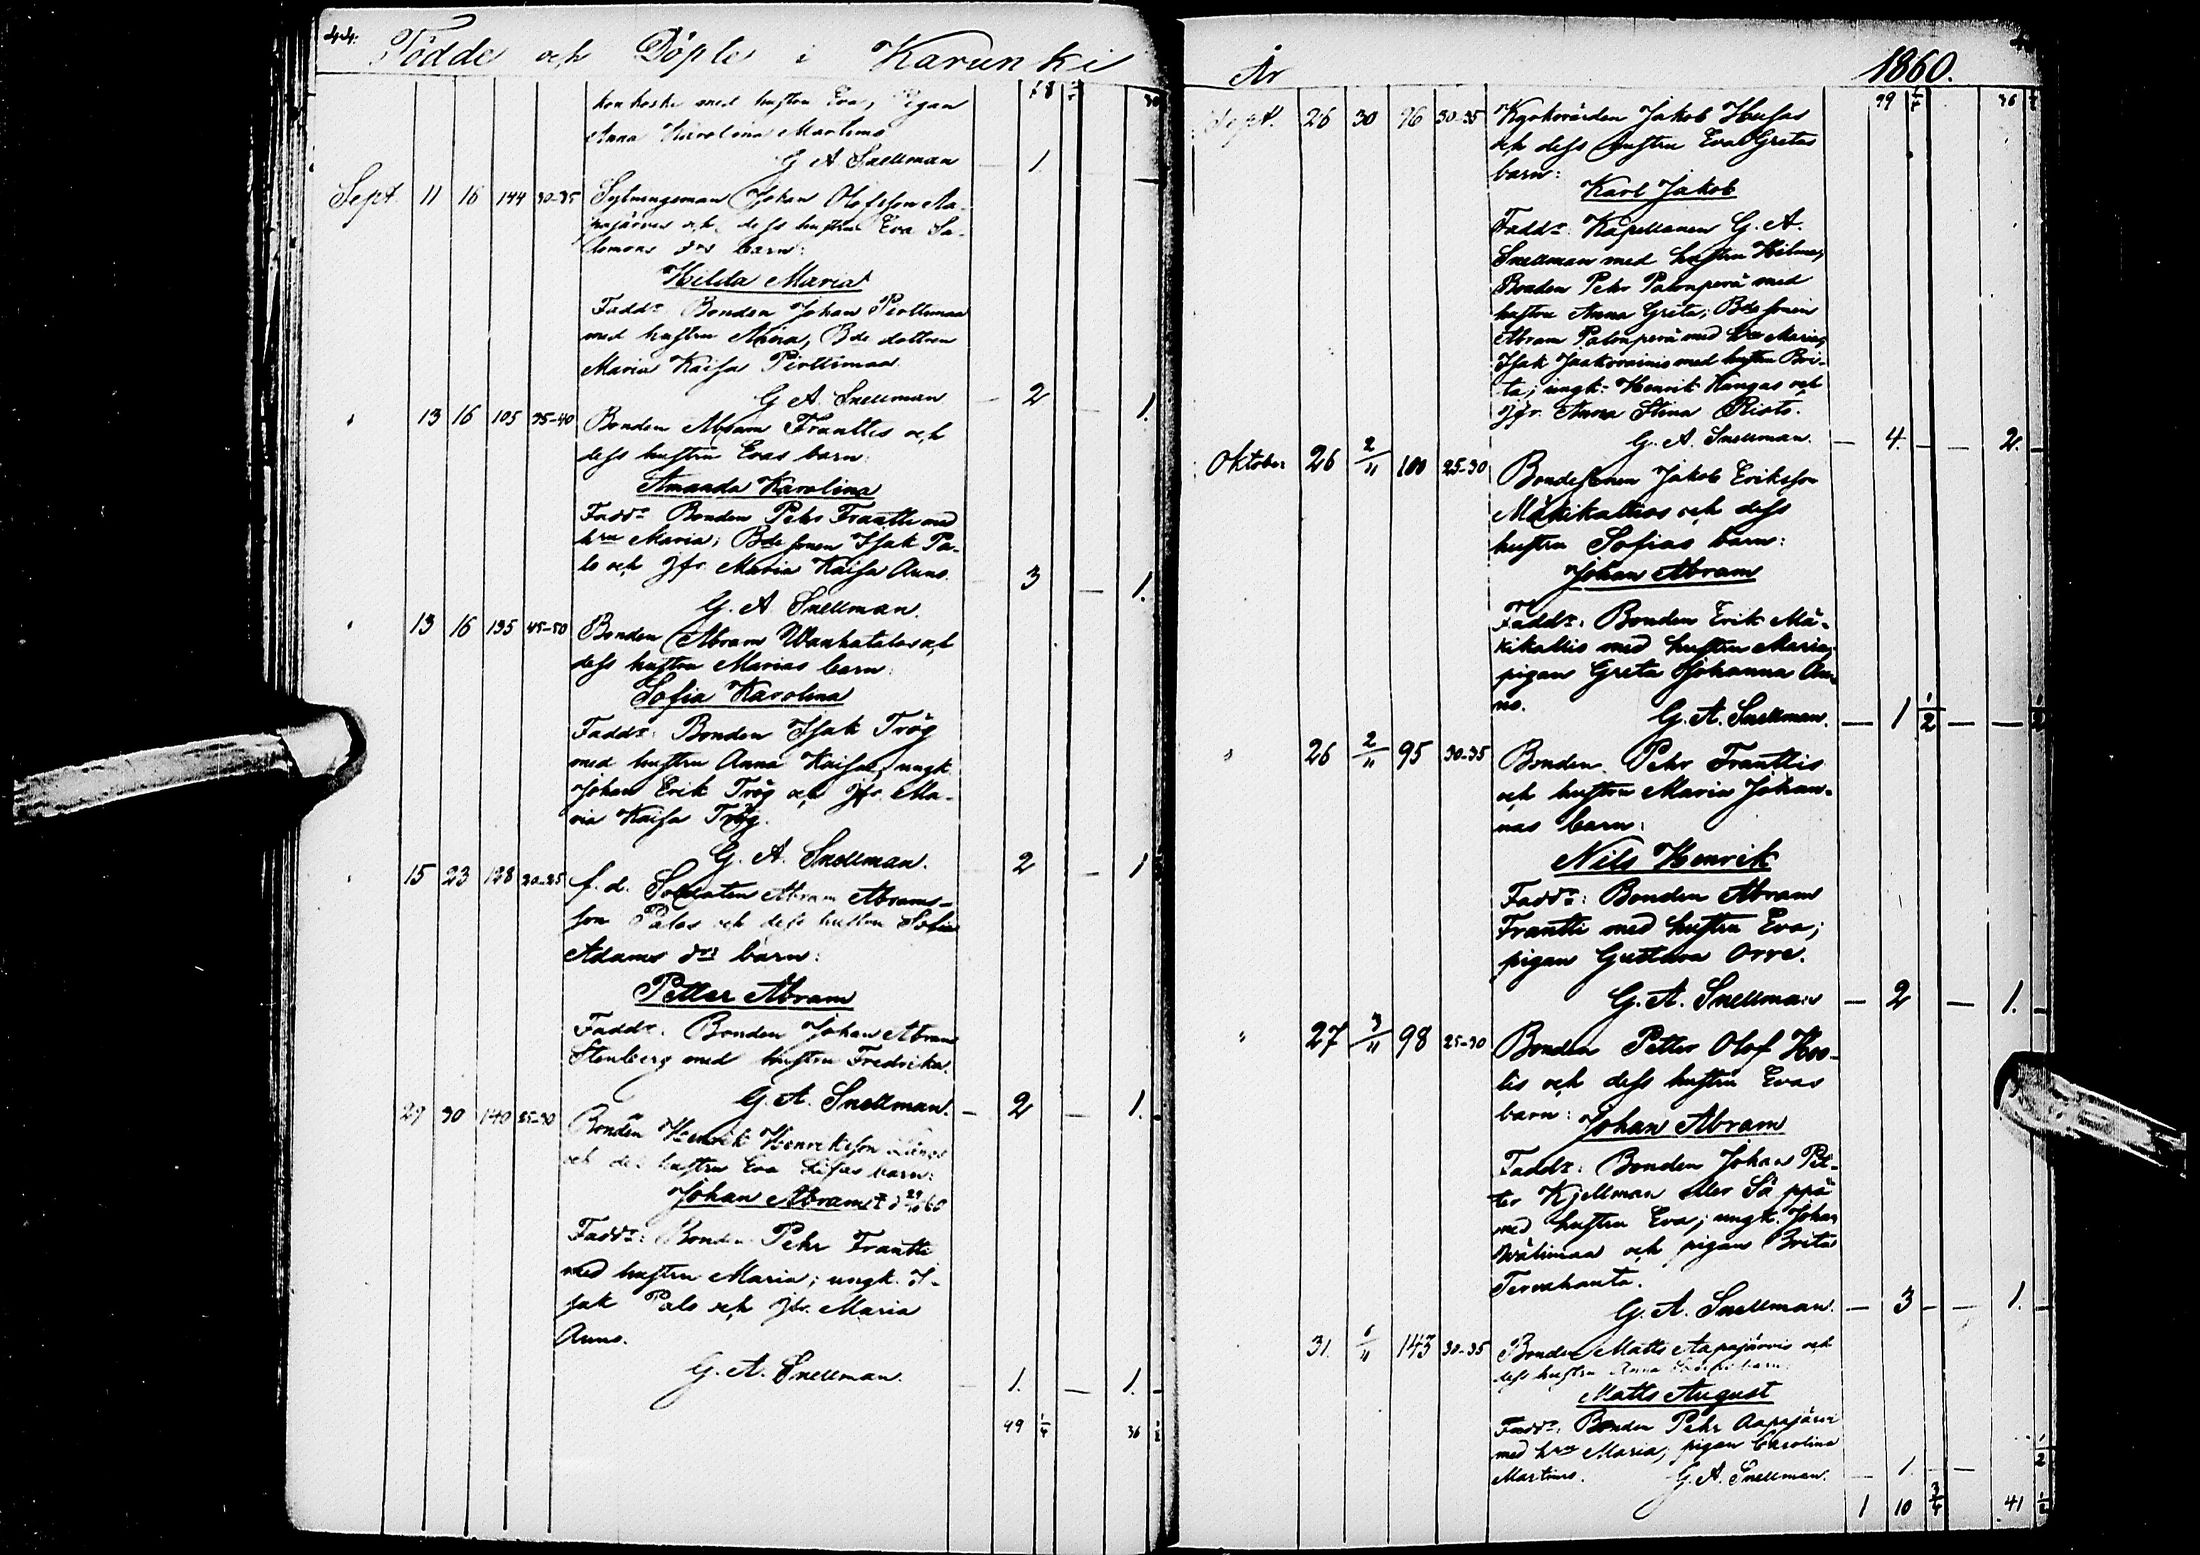 44.
Födde och Döpte i Karunki
18
med hustru Eva, Pigan
Anna Karolina Martimo
G A Snellman — 1.
Sept. 11 16 144 30-35 Sytningsman Johan Olofsson Aa-
pajärvis och dess hustru Eva Sa-
lomons drs barn:
Hilda Maria
Faddr: Bonden Johan Pirttimaa
med hustru Maria, Bde dottren
Maria Kaisa Pirttimaa.
G A Snellman — 2 — 1.
" 13 16 105 35-40 Bonden Abram Franttis och
dess hustru Evas barn:
Amanda Karolina
Faddr Bonden Pehr Frantti med
hru Maria; Bde sonen Isak Pa-
lo och Jfr. Maria Kaisa Auno. 3 — 1.
G. A. Snellman.
" 13 16 135 45-50 Bonden Abram Wanhatalos och
dess hustru Marias barn:
Sofia Karolina
Faddr: Bonden Isak Trög
med hustru Anna Kaisa, ungk.
Johan Erik Trög och Jfr. Ma-
ria Kaisa Trög.
G. A. Snellman. 2 — 1
" 15 23 128 20-25 f. d. Soldaten Abram Abrams-
son Palos och dess hustru Sofia
Adams drs barn:
Petter Abram
Faddr: Bonden Johan Abram
Stenberg med hustru Fredrika.
G. A. Snellman. — 2 — 1.
29 30 140 25-30 Bonden Henrik Henriksson
och dess hustru Eva Lisas barn:
Johan Abram † d 29/10 60
Faddr: Bonden Pehr Frantti
med hustru Maria; ungk. I-
sak Palo och Jfr. Maria
Auno.
G. A. Snellman. — 1. — 1.
99 1/4 36 1/2
År 1860.
99 1/4 36 1/2
Sept. 26 30 96 30-35 Kyrkovärden Jakob Husas
och dess hustru Eva Gretas
barn:
Karl Jakob
Faddr: Kapellanen G. A.
Snellman med hustru Hilma,
Bonden Pehr Palonperä med
hustru Anna Greta; Bde sonen
Abram Palonperä med hru Maria,
Isak Jaakovainio med hustru Bri-
ta; ungk: Henrik Kangas och
Jfr. Anna Stina Risto.
G. A. Snellman. — 4. — — 2. —
Oktober 26 2/11 100 25-30 Bondesonen Jakob Eriksson
Mäkikallios och dess
hustru Sofias barn:
Johan Abram
Faddr: Bonden Erik Mä-
kikallio med hustru Maria;
pigan Greta Johanna Au-
no.
G. A. Snellman. — 1 1/2 — — 1/2
" 26 2/11 95 30-35 Bonden Pehr Franttis
och hustru Maria Johan-
nas barn:
Nils Henrik
Faddr: Bonden Abram
Frantti med hustru Eva;
pigan Gustava Orre.
G. A. Snellman — 2 — 1. —
" 27 3/11 98 25-30 Bonden Petter Olof
och dess hustru Evas
barn: Johan Abram
Faddr: Bonden Johan Pet-
ter Kjellman eller Säppä
med hustru Eva; ungk. Johan
Wälimaa och pigan Brita
Tervahauta.
G. A. Snellman. — 3 — — 1. —
31. 6/11 143 30-35 Bonden Matts Aapajärvis och
dess hustru Anna barn:
Matts August
Faddr: Bonden Pehr Aapajärvi
med hru Maria; pigan Carolina
Martimo. G. A. Snellman. — 1. — 1/2
1 10 3/4 41 1/2